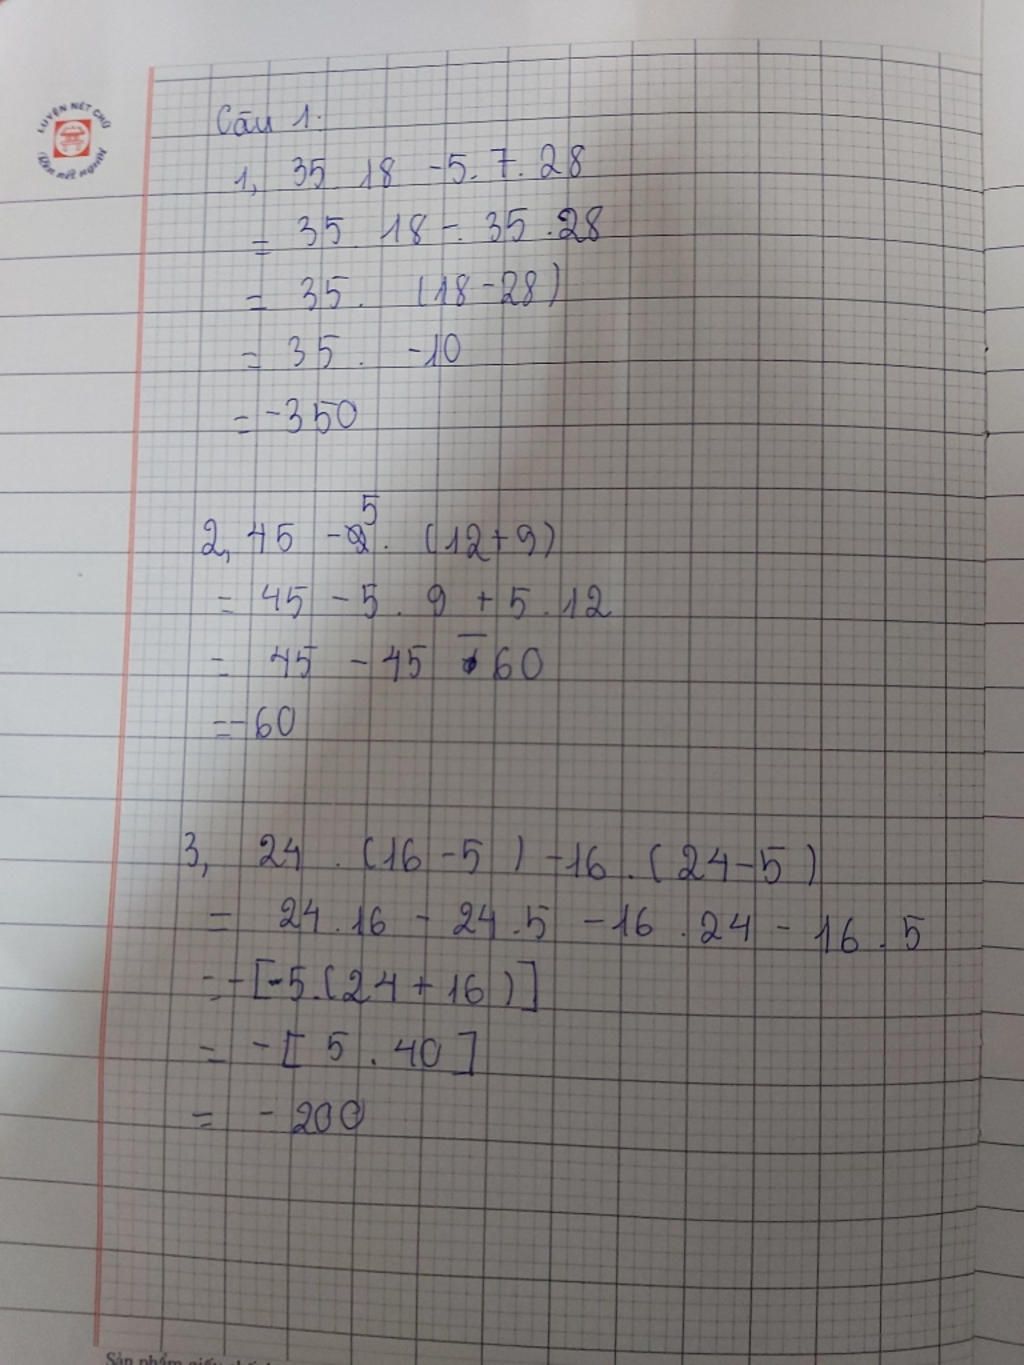 LUYỆN NÉT CHỮ
Rèn nết người
Câu 1.
1, 35 18 - 5. 7. 28
= 35. 18 - 35 .28
= 35. (18-28)
= 35. -10
= -350
5
2, 45 - . (12+9)
= 45 - 5. 9 + 5.12
= 45 - 45 - 60
= -60
3, 24 . (16-5) -16 . (24-5)
= 24.16 - 24.5 - 16 .24 - 16 . 5
= -[-5.(24+16)]
= -[ 5 .40]
= -200
Sản phẩm giấy